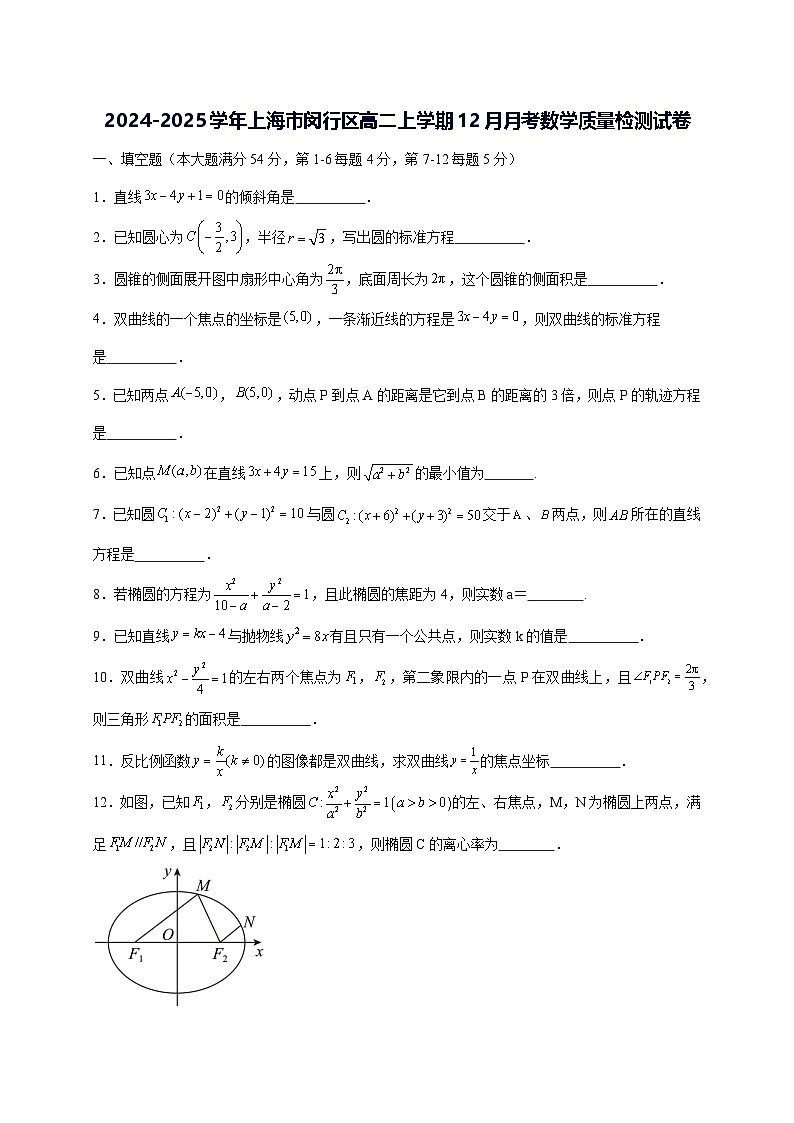 2024-2025学年上海市闵行区高二上学期12月月考数学质量检测试卷
一、填空题（本大题满分54分，第1-6每题4分，第7-12每题5分）
1．直线3x－4y＋1＝0的倾斜角是__________．
2．已知圆心为C(－3/2,3)，半径r＝√3，写出圆的标准方程__________．
3．圆锥的侧面展开图中扇形中心角为2π/3，底面周长为2π，这个圆锥的侧面积是__________．
4．双曲线的一个焦点的坐标是(5,0)，一条渐近线的方程是3x－4y＝0，则双曲线的标准方程
是__________．
5．已知两点A(－5,0)，B(5,0)，动点P到点A的距离是它到点B的距离的3倍，则点P的轨迹方程
是__________．
6．已知点M(a,b)在直线3x＋4y＝15上，则√(a²＋b²)的最小值为_______.
7．已知圆C₁:(x－2)²＋(y－1)²＝10与圆C₂:(x＋6)²＋(y＋3)²＝50交于A、B两点，则AB所在的直线
方程是__________．
8．若椭圆的方程为x²/(10－a)＋y²/(a－2)＝1，且此椭圆的焦距为4，则实数a＝________.
9．已知直线y＝kx－4与抛物线y²＝8x有且只有一个公共点，则实数k的值是__________．
10．双曲线x²－y²/4＝1的左右两个焦点为F₁，F₂，第二象限内的一点P在双曲线上，且∠F₁PF₂＝2π/3，
则三角形F₁PF₂的面积是__________．
11．反比例函数y＝k/x(k≠0)的图像都是双曲线，求双曲线y＝1/x的焦点坐标__________．
12．如图，已知F₁，F₂分别是椭圆C:x²/a²＋y²/b²＝1(a＞b＞0)的左、右焦点，M，N为椭圆上两点，满
足F₁M//F₂N，且|F₂N|:|F₂M|:|F₁M|＝1:2:3，则椭圆C的离心率为________．
y
M
N
O
F₁
F₂
x